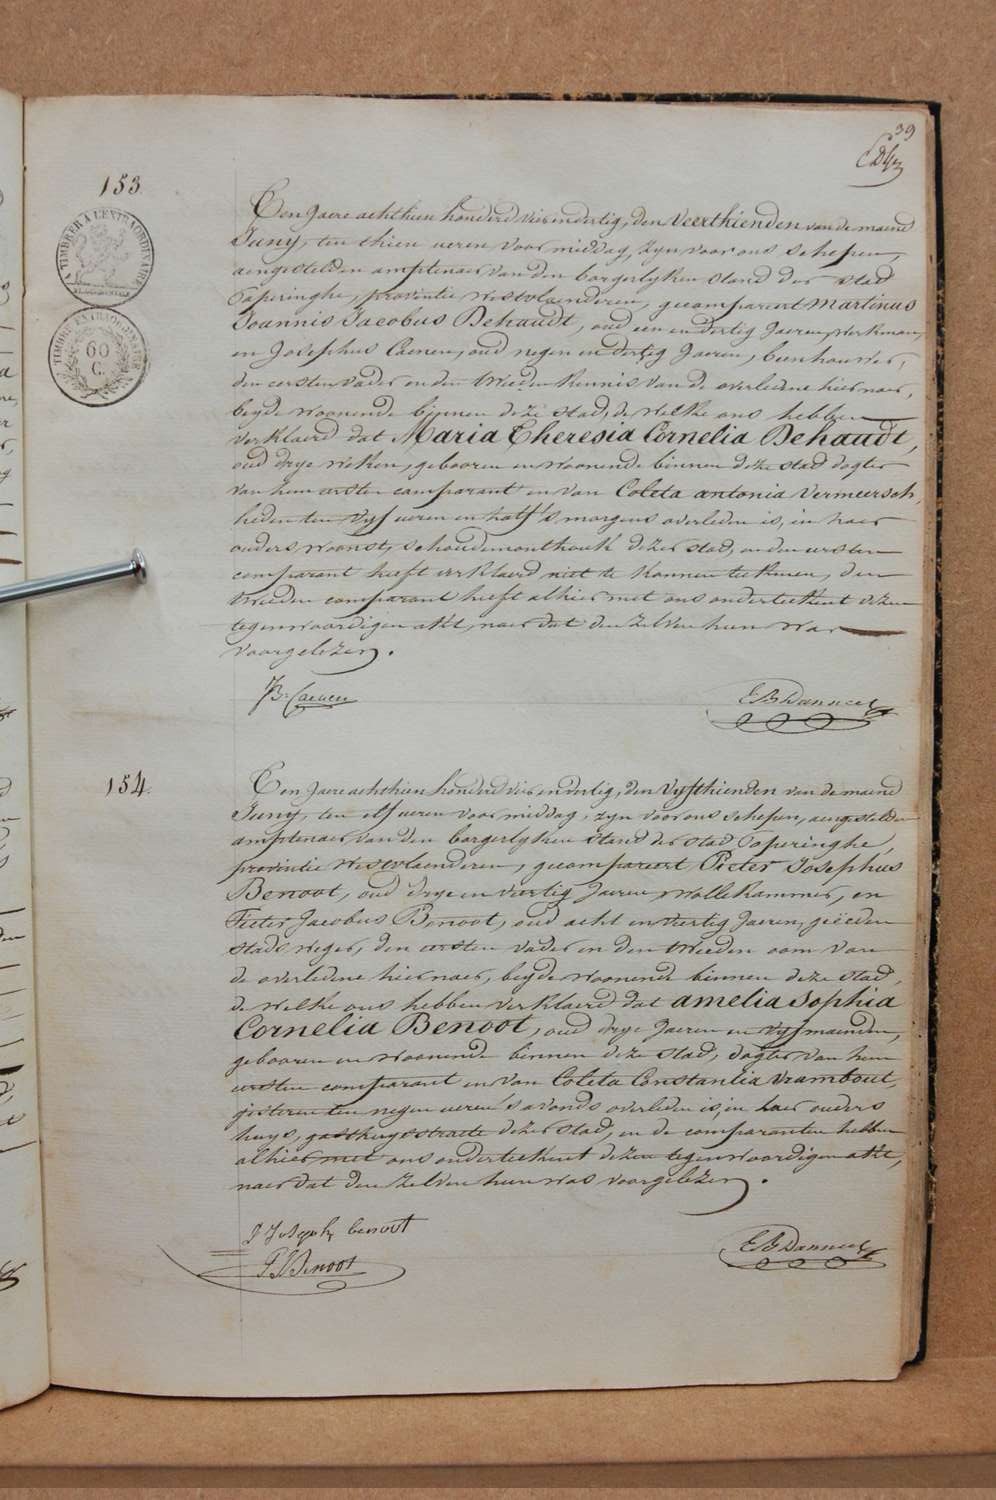 39
153
TIMBRER À L'EXTRAORDINAIRE
TIMBRE EXTRAORDINAIRE
60
C.
Ten Jaere achthien honderd vierendertig, den Veerthienden van de maend
Juny, ten thien ueren voor middag, zyn voor ons schepen,
aengestelden amptenaer van den borgerlyken stand der stad
Poperinghe, provintie Westvlaenderen, gecompareert Martinus
Joannis Jacobus Dehaudt, oud een en dertig Jaeren, Werkman,
en Josephus Caenen, oud negen en dertig Jaeren, beenhouwer,
den eersten vader en den tweeden kennis van de overledene hiernaer,
beyde woonende binnen deze stad, de welke ons hebben
verklaerd dat Maria Theresia Cornelia Dehaudt,
oud drye weken, gebooren en woonende binnen deze stad dogter
van hem eersten comparant en van Coleta antonia Vermeersch,
heden ten vyf ueren en half s'morgens overleden is, in haer
ouders woonst, schoudemonthouk dezer stad, en den eersten
comparant heeft verklaerd niet te konnen teekenen, den
tweeden comparant heeft alhier met ons onderteekent dezen
tegenwoordigen akt, naer dat den zelven hun was
voorgelezen.
JB Caenen
E B Danneel
154.
Ten Jaere achthien honderd vierendertig, den Vyfthienden van de maend
Juny, ten elf ueren voor middag, zyn voor ons schepen, aengestelden
amptenaer van den borgerlyken stand der stad Poperinghe,
provintie Westvlaenderen, gecompareert Pieter Josephus
Benoot, oud drye en veertig Jaeren, Wollekammer, en
Pieter Jacobus Benoot, oud acht en veertig Jaeren, geëeden
stads weger, den eersten vader en den tweeden oom van
de overledene hiernaer, beyde woonende binnen deze stad,
de welke ons hebben verklaerd dat amelia Sophia
Cornelia Benoot, oud drye Jaeren en vyf maenden,
gebooren en woonende binnen deze stad, dogter van hem
eersten comparant en van Coleta Constantia Vrambout,
gisteren ten negen ueren s'avonds overleden is, in haer ouders
huys, gasthuysstraete dezer stad, en de comparanten hebben
alhier met ons onderteekent dezen tegenwoordigen akt,
naer dat den zelven hun was voorgelezen.
P Joseph benoot
P J Benoot
E B Danneel